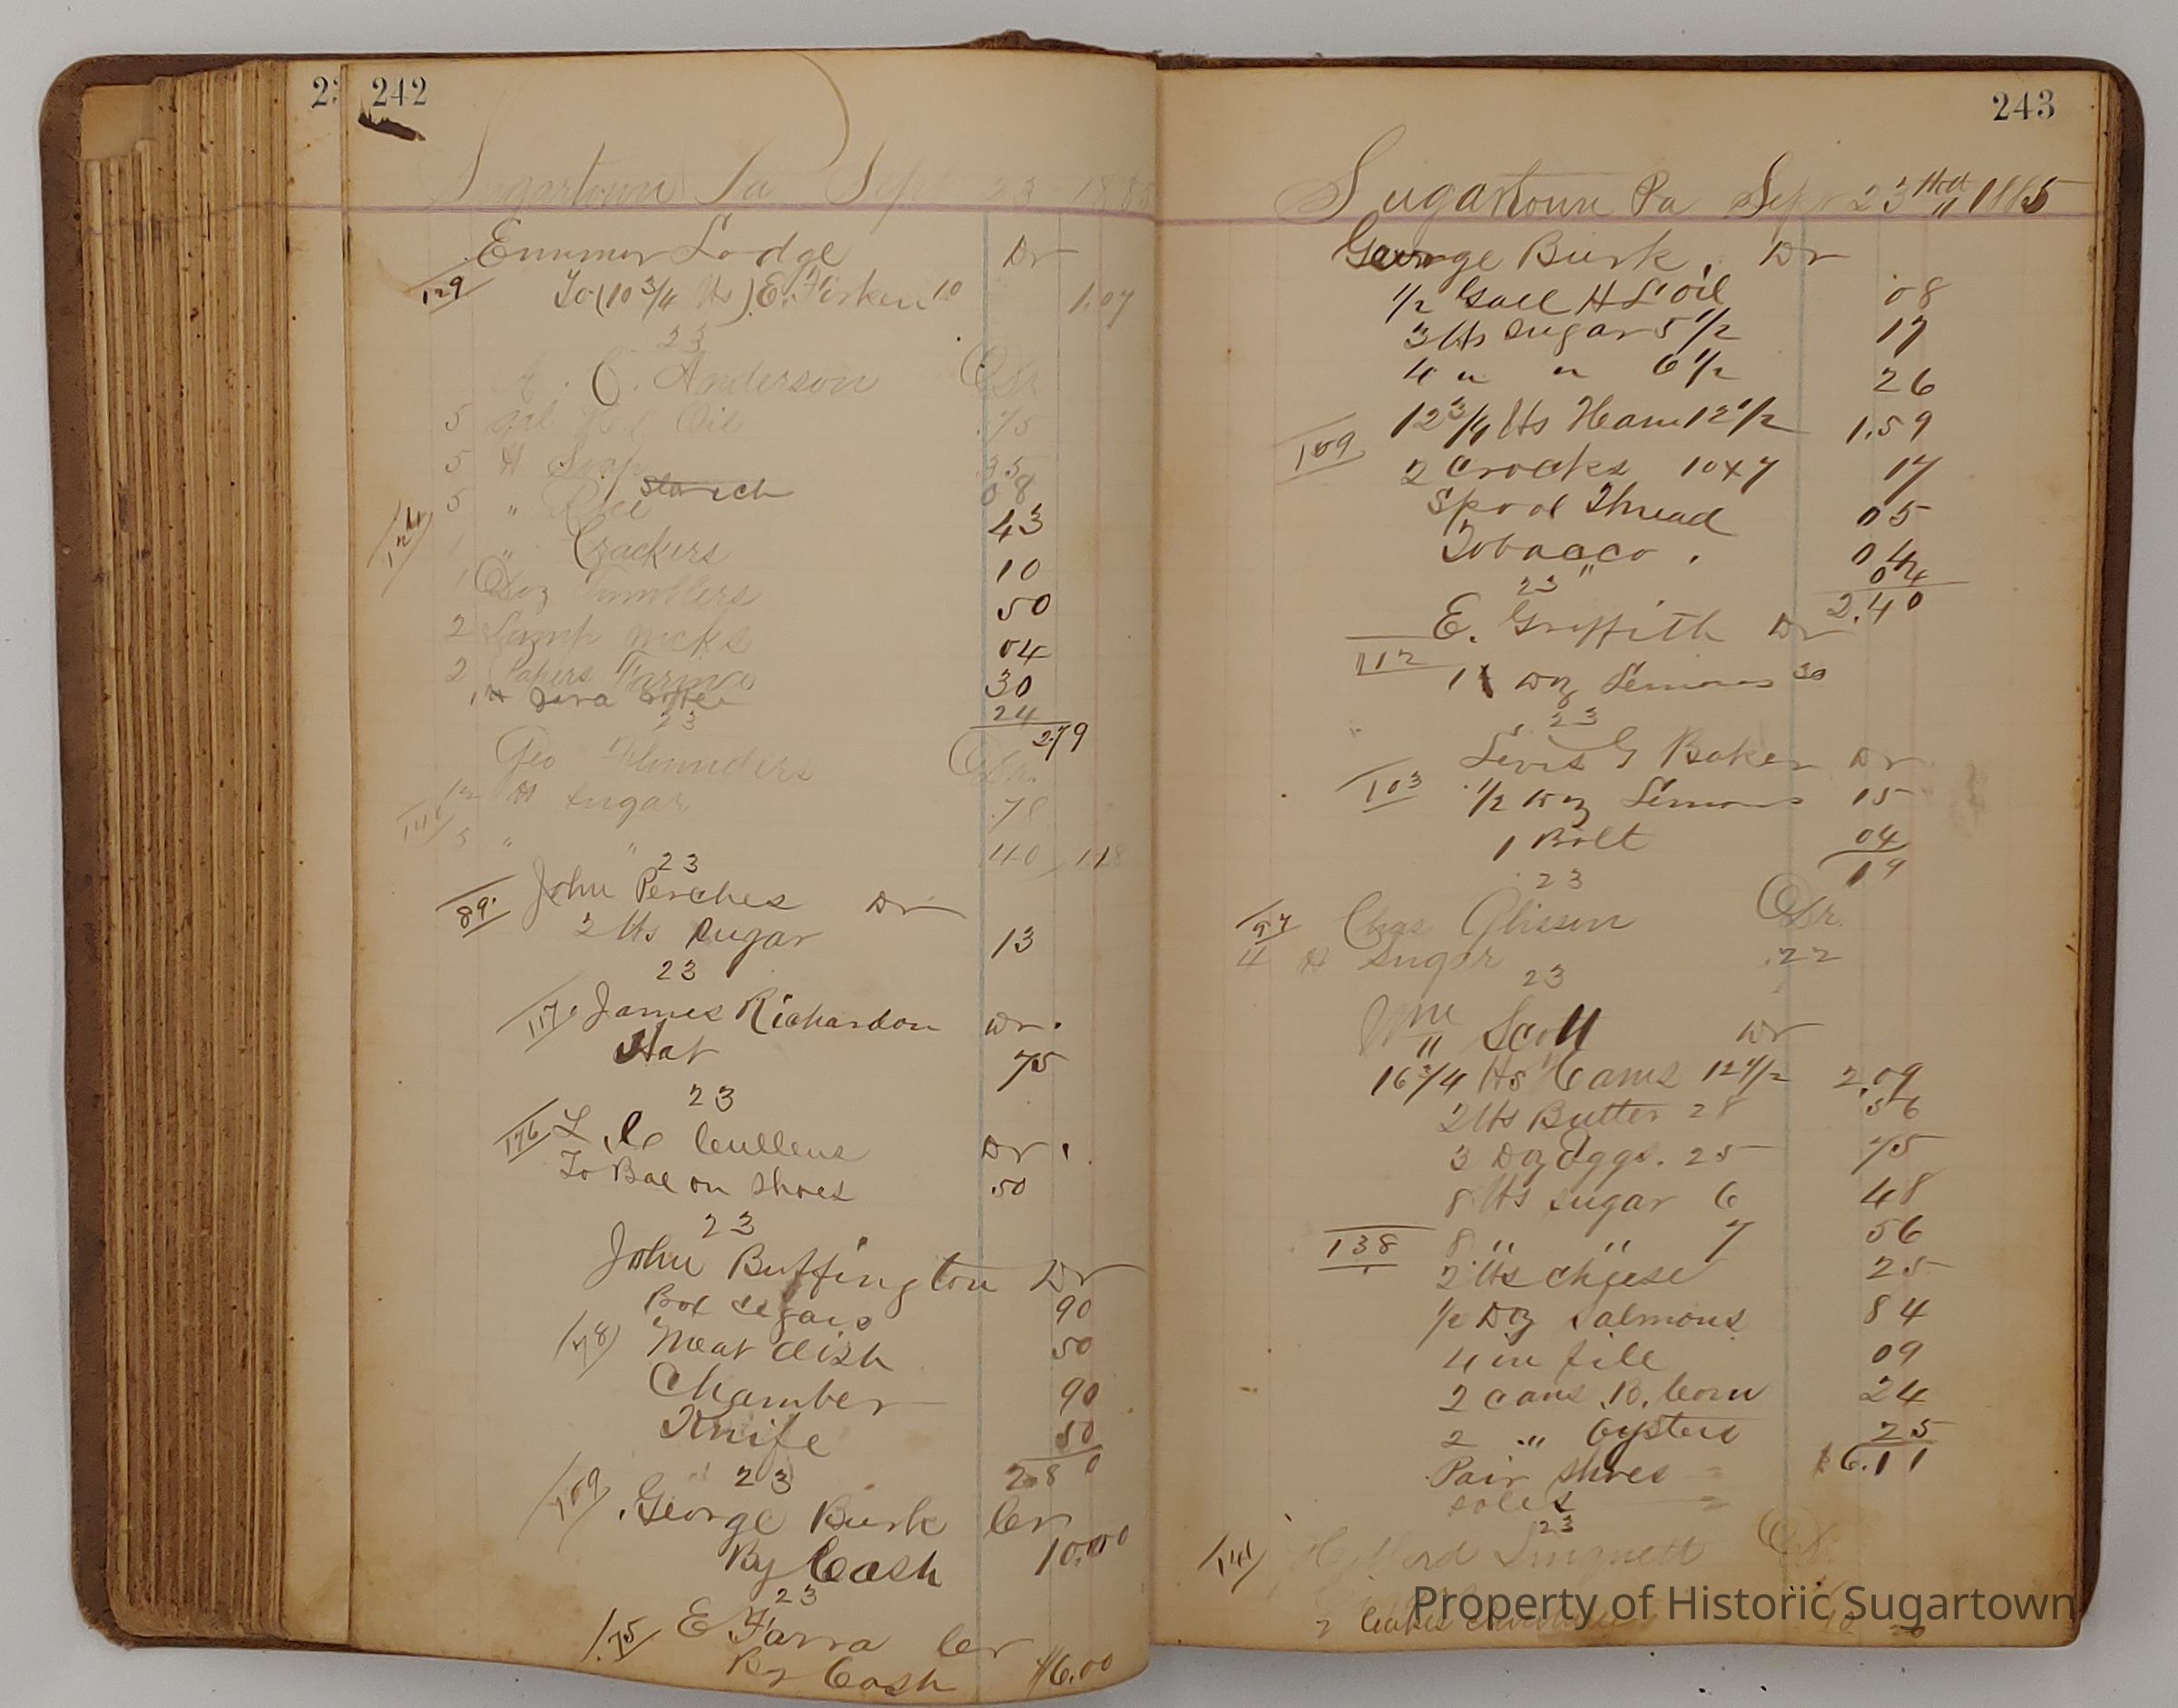 242
Sugartown Pa Sept 23 1885
Emmor Lodge Dr
129 To (10 3/4 lbs) E. Firken 10 1.07
23
Anderson Dr
5 gal H L Oil .75
5 lb Soap .35
starch 08
5 " Rice 43
1 " Crackers 10
1 Doz Tumblers 50
2 Lamp wicks 04
2 Papers Farina 30
1 lb Java Coffee 24
23 2.79
Geo Dr.
12 lb Sugar .78
5 " " 40 1.18
23
89 John Perches Dr
2 lbs Sugar 13
23
117 James Richardson Dr.
Hat 75
23
176 L. C Cullens Dr.
To Bal on Shoes .50
23
John Buffington Dr
Box Segars 90
178 Meat dish 50
Chamber 90
Knife 50
23 2.80
109 George Burk Cr
By Cash 10.00
23
175 E Farra Cr
By Cash $6.00
243
Sugartown Pa Sept 23rd 1885
George Burk. Dr
1/2 Gall H L Oil 08
3 lbs Sugar 5 1/2 17
4 " " 6 1/2 26
12 3/4 lbs Ham 12 1/2 1.59
109 2 Crocks 10 x 7 17
Spool Thread 05
Tobacco. 04
04
23 2.40
E. Griffith Dr
112 1 Doz Lemons 30
23
Levis G Baker Dr
103 1/2 Doz Lemons 15
1 Bolt 04
19
23
97 Chas Glisson Dr.
4 lb Sugar .22
23
Wm Scott Dr
16 3/4 lbs Hams 12 1/2 2.09
2 lbs Butter 28 56
3 Doz Eggs. 25 75
8 lbs sugar 6 48
138 8 " " 7 56
2 lbs cheese 25
1/2 Doz Salmons 84
4 in file 09
2 cans B. Corn 24
2 " Oysters 25
Pair shoes $6.11
soles
23
141
2 Cakes
Property of Historic Sugartown